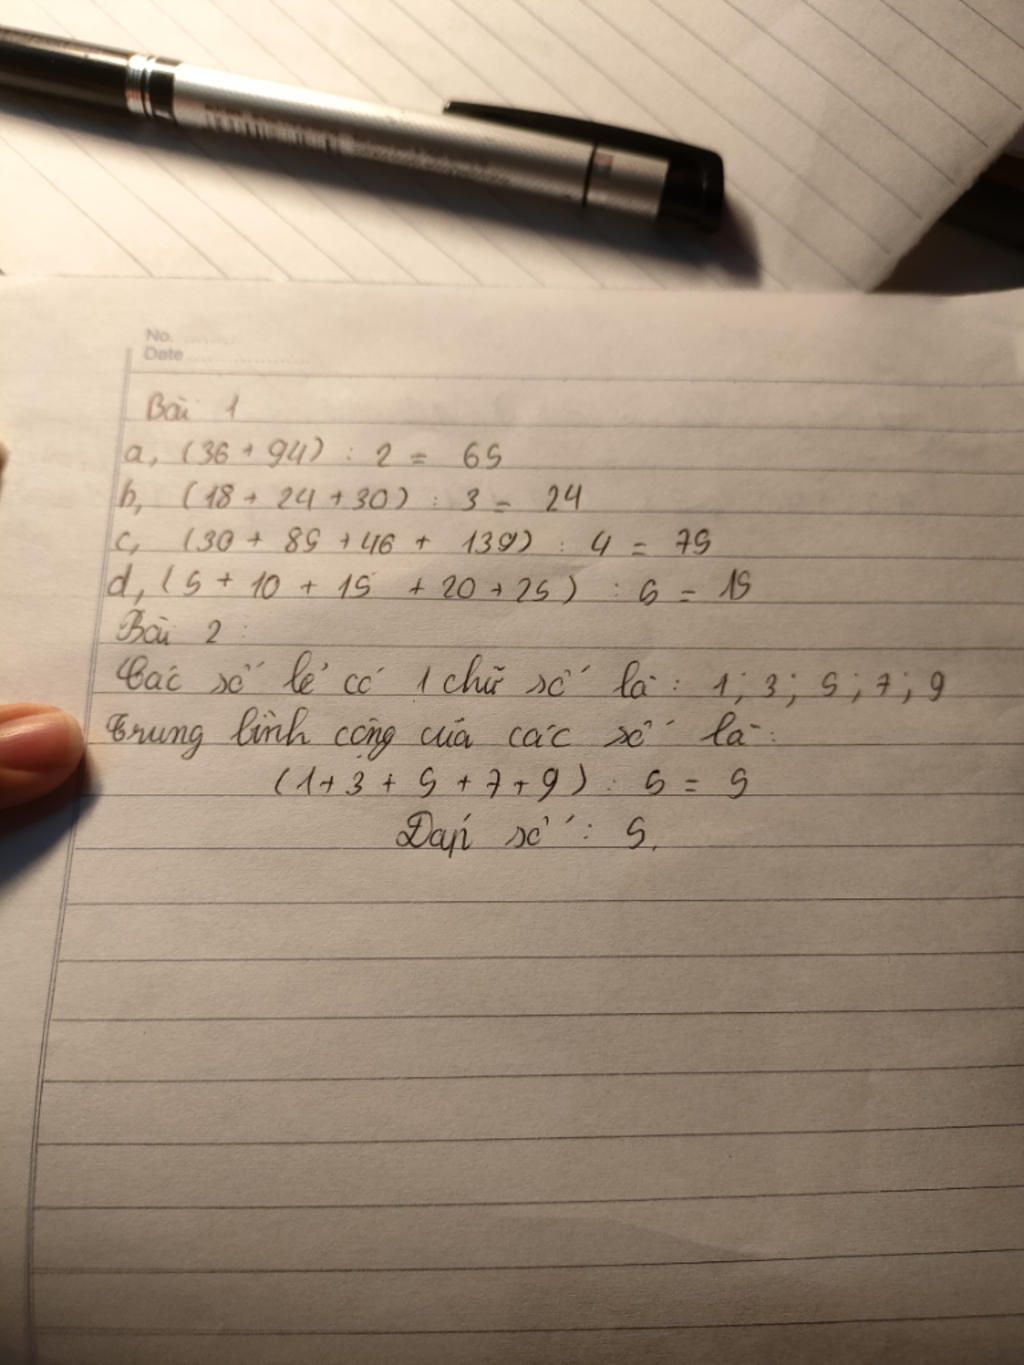 No. ............
Date ........................
Bài 1
a, (36 + 94) : 2 = 65
b, (18 + 24 + 30) : 3 = 24
c, (30 + 85 + 46 + 139) : 4 = 75
d, (5 + 10 + 15 + 20 + 25) : 5 = 15
Bài 2 :
Các số lẻ có 1 chữ số là : 1 ; 3 ; 5 ; 7 ; 9
Trung bình cộng của các số là :
(1 + 3 + 5 + 7 + 9) : 5 = 5
Đáp số : 5.